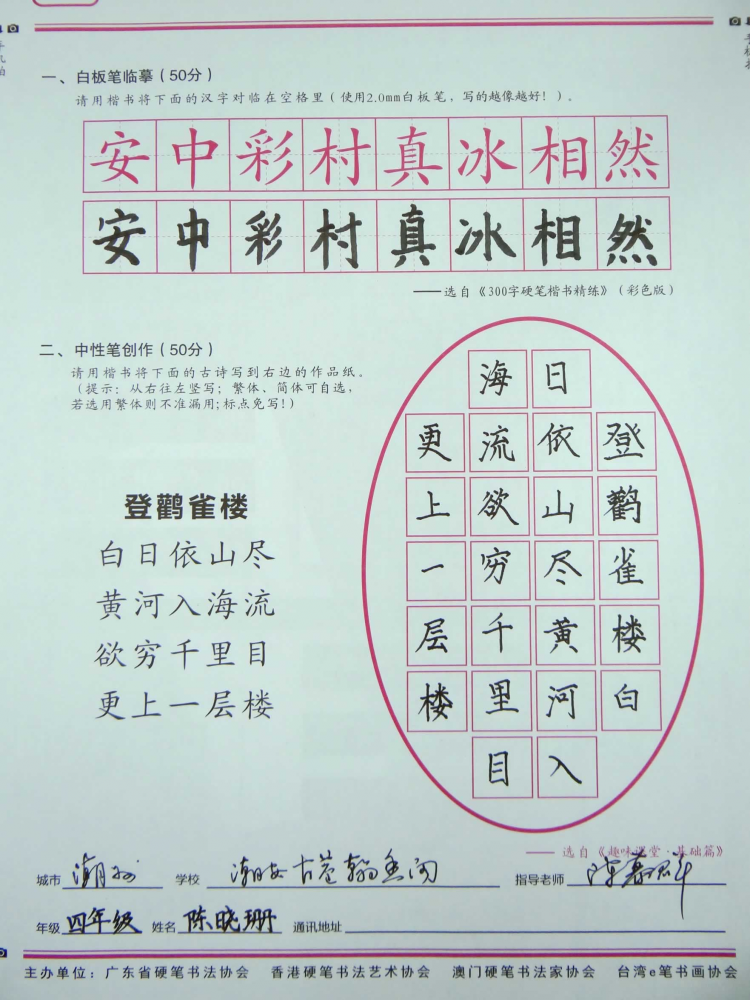 一、白板笔临摹（50分）
请用楷书将下面的汉字对临在空格里（使用2.0mm白板笔，写的越像越好！）。
安中彩村真冰相然
安中彩村真冰相然
——选自《300字硬笔楷书精练》（彩色版）
二、中性笔创作（50分）
请用楷书将下面的古诗写到右边的作品纸。
（提示：从右往左竖写；繁体、简体可自选，
若选用繁体则不准漏用;标点免写！）
登鹳雀楼
白日依山尽
黄河入海流
欲穷千里目
更上一层楼
登鹳雀楼白
日依山尽黄河入
海流欲穷千里目
更上一层楼
——选自《趣味课堂·基础篇》
城市 潮州 学校 潮安古巷翰墨阁 指导老师
年级 四年级 姓名 陈晓珊 通讯地址
主办单位：广东省硬笔书法协会 香港硬笔书法艺术协会 澳门硬笔书法家协会 台湾e笔书画协会